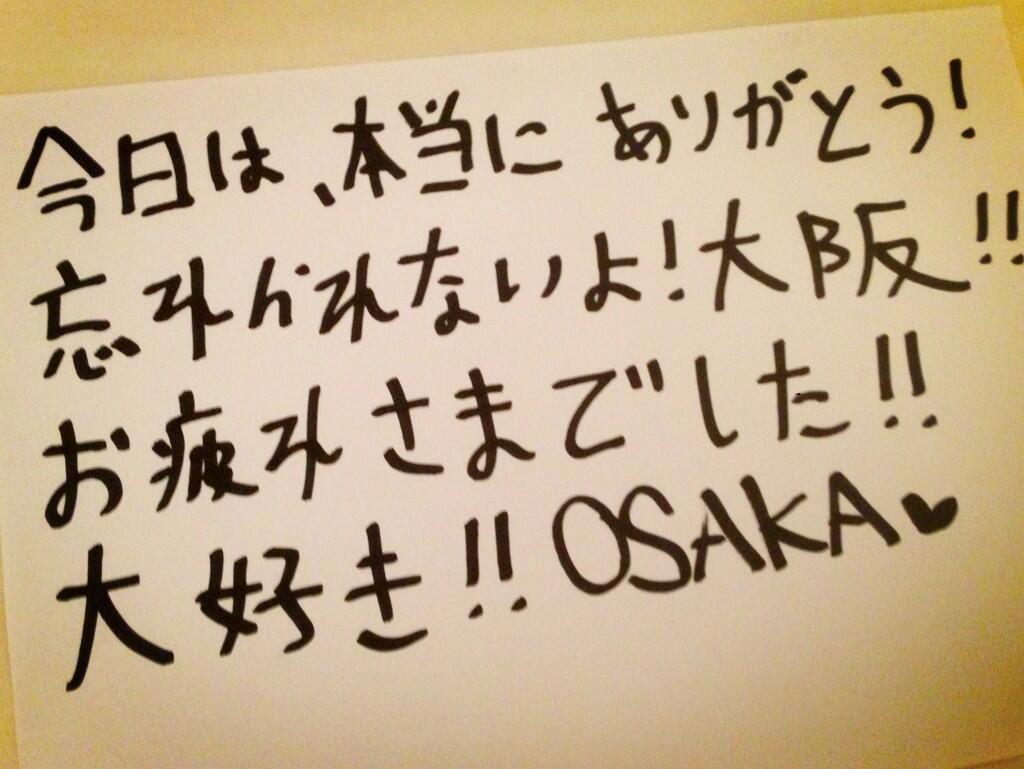 今日は、本当にありがとう!
忘れかれないよ!大阪!!
お疲れさまでした!!
大好き!!OSAKA♥